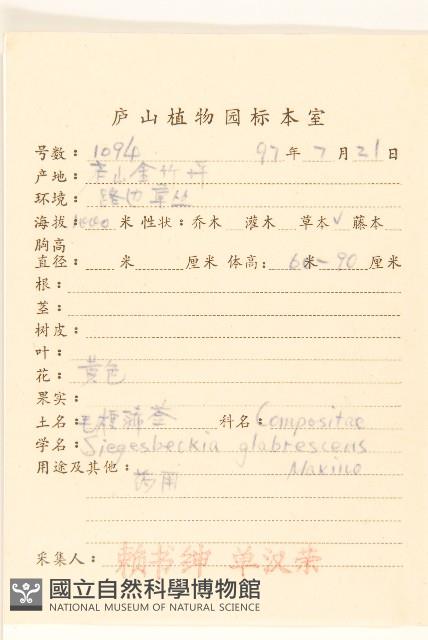 庐山植物园标本室
号数：1094 97年7月21日
产地：庐山金竹坪
环境：路边草丛
海拔：1000米 性状：乔木 灌木 草本✓ 藤本
胸高
直径： 米 厘米 体高：60米-90厘米
根：
茎：
树皮：
叶：
花：黄色
果实：
土名：毛梗豨莶 科名：Compositae
学名：Siegesbeckia glabrescens
用途及其他： Makino
药用
采集人：赖书绅 单汉荣
國立自然科學博物館
NATIONAL MUSEUM OF NATURAL SCIENCE